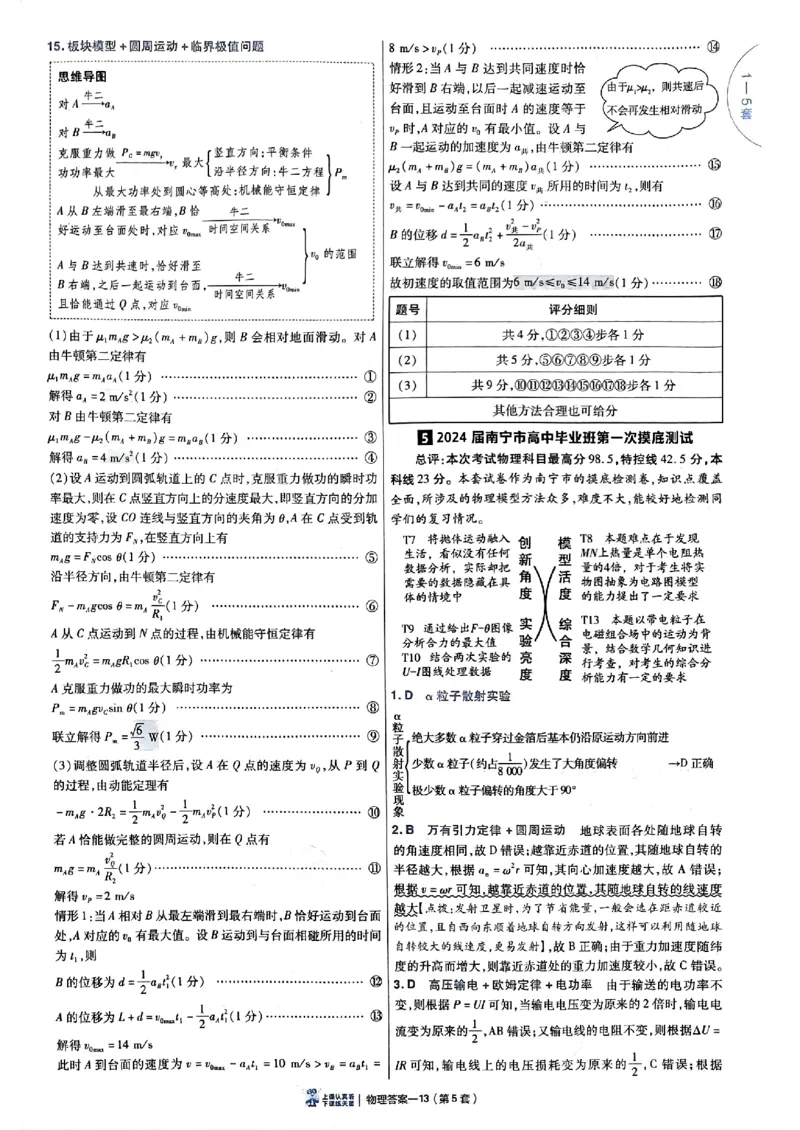 15. 板块模型+圆周运动+临界极值问题
思维导图
对A 牛二→ a_A
对B 牛二→ a_B
克服重力做功功率最大 P_C=mgv_y→ v_y最大 { 竖直方向:平衡条件 沿半径方向:牛二方程 } P_m
从最大功率处到圆心等高处:机械能守恒定律
A从B左端滑至最右端,B恰好运动至台面处时,对应v_0max 牛二 时间空间关系→ v_0max
A与B达到共速时,恰好滑至B右端,之后一起运动到台面,且恰能通过Q点,对应v_0min 牛二 时间空间关系→ v_0min
v_0的范围
(1)由于μ₁m_Ag>μ₂(m_A+m_B)g,则B会相对地面滑动。对A
由牛顿第二定律有
μ₁m_Ag=m_Aa_A(1分) ①
解得a_A=2 m/s²(1分) ②
对B由牛顿第二定律有
μ₁m_Ag-μ₂(m_A+m_B)g=m_Ba_B(1分) ③
解得a_B=4 m/s²(1分) ④
(2)设A运动到圆弧轨道上的C点时,克服重力做功的瞬时功
率最大,则在C点竖直方向上的分速度最大,即竖直方向的分加
速度为零,设CO连线与竖直方向的夹角为θ,A在C点受到轨
道的支持力为F_N,在竖直方向上有
m_Ag=F_Ncos θ(1分) ⑤
沿半径方向,由牛顿第二定律有
F_N-m_Agcos θ=m_A v_C²/R₁(1分) ⑥
A从C点运动到N点的过程,由机械能守恒定律有
1/2 m_Av_C²=m_AgR₁cos θ(1分) ⑦
A克服重力做功的最大瞬时功率为
P_m=m_Agv_Csin θ(1分) ⑧
联立解得P_m=√6/3 W(1分) ⑨
(3)调整圆弧轨道半径后,设A在Q点的速度为v_Q,从P到Q
的过程,由动能定理有
-m_Ag·2R₂=1/2 m_Av_Q²-1/2 m_Av_P²(1分) ⑩
若A恰能做完整的圆周运动,则在Q点有
m_Ag=m_A v_Q²/R₂(1分) ⑪
解得v_P=2 m/s
情形1:当A相对B从最左端滑到最右端时,B恰好运动到台面
处,A对应的v_0有最大值。设B运动到与台面相碰所用的时间
为t₁,则
B的位移为d=1/2 a_Bt₁²(1分) ⑫
A的位移为L+d=v_0maxt₁-1/2 a_At₁²(1分) ⑬
解得v_0max=14 m/s
此时A到台面的速度为v=v_0max-a_At₁=10 m/s>v_B=a_Bt₁=
8 m/s>v_P(1分) ⑭
情形2:当A与B达到共同速度时恰
好滑到B右端,以后一起减速运动至
台面,且运动至台面时A的速度等于
v_P时,A对应的v_0有最小值。设A与
B一起运动的加速度为a_共,由牛顿第二定律有
由于μ₁>μ₂,则共速后
不会再发生相对滑动
1—5套
μ₂(m_A+m_B)g=(m_A+m_B)a_共(1分) ⑮
设A与B达到共同的速度v_共所用的时间为t₂,则有
v_共=v_0min-a_At₂=a_Bt₂(1分) ⑯
B的位移d=1/2 a_Bt₂²+(v_共²-v_P²)/2a_共(1分) ⑰
联立解得v_0min=6 m/s
故初速度的取值范围为6 m/s≤v_0≤14 m/s(1分) ⑱
题号 评分细则
(1) 共4分,①②③④步各1分
(2) 共5分,⑤⑥⑦⑧⑨步各1分
(3) 共9分,⑩⑪⑫⑬⑭⑮⑯⑰⑱步各1分
其他方法合理也可给分
5 2024届南宁市高中毕业班第一次摸底测试
总评:本次考试物理科目最高分98.5,特控线42.5分,本
科线23分。本套试卷作为南宁市的摸底检测卷,知识点覆盖
全面,所涉及的物理模型方法众多,难度不大,能较好地检测同
学们的复习情况。
T7 将抛体运动融入
生活,看似没有任何
数据分析,实际却把
需要的数据隐藏在具
体的情境中
创新角度
模型活度
T8 本题难点在于发现
MN上热量是单个电阻热
量的4倍,对于考生将实
物图抽象为电路图模型
的能力提出了一定要求
T9 通过给出F-θ图像
分析合力的最大值
T10 结合两次实验的
U-I图线处理数据
实验亮度
综合深度
T13 本题以带电粒子在
电磁组合场中的运动为背
景,结合数学几何知识进
行考查,对考生的综合分
析能力有一定的要求
1. D α粒子散射实验
α粒子散射实验现象
绝大多数α粒子穿过金箔后基本仍沿原运动方向前进
少数α粒子(约占1/8 000)发生了大角度偏转 →D正确
极少数α粒子偏转的角度大于90°
2. B 万有引力定律+圆周运动 地球表面各处随地球自转
的角速度相同,故D错误;越靠近赤道的位置,其随地球自转的
半径越大,根据a_n=ω²r可知,其向心加速度越大,故A错误;
根据v=ωr可知,越靠近赤道的位置,其随地球自转的线速度
越大【点拨:发射卫星时,为了节省能量,一般会选在距赤道较近
的位置,且自西向东顺着地球自转方向发射,这样可以利用随地球
自转较大的线速度,更易发射】,故B正确;由于重力加速度随纬
度的升高而增大,则靠近赤道处的重力加速度较小,故C错误。
3. D 高压输电+欧姆定律+电功率 由于输送的电功率不
变,则根据P=UI可知,当输电电压变为原来的2倍时,输电电
流变为原来的1/2,AB错误;又输电线的电阻不变,则根据ΔU=
IR可知,输电线上的电压损耗变为原来的1/2,C错误;根据
上课认真听
下课练天星 物理答案—13(第5套)